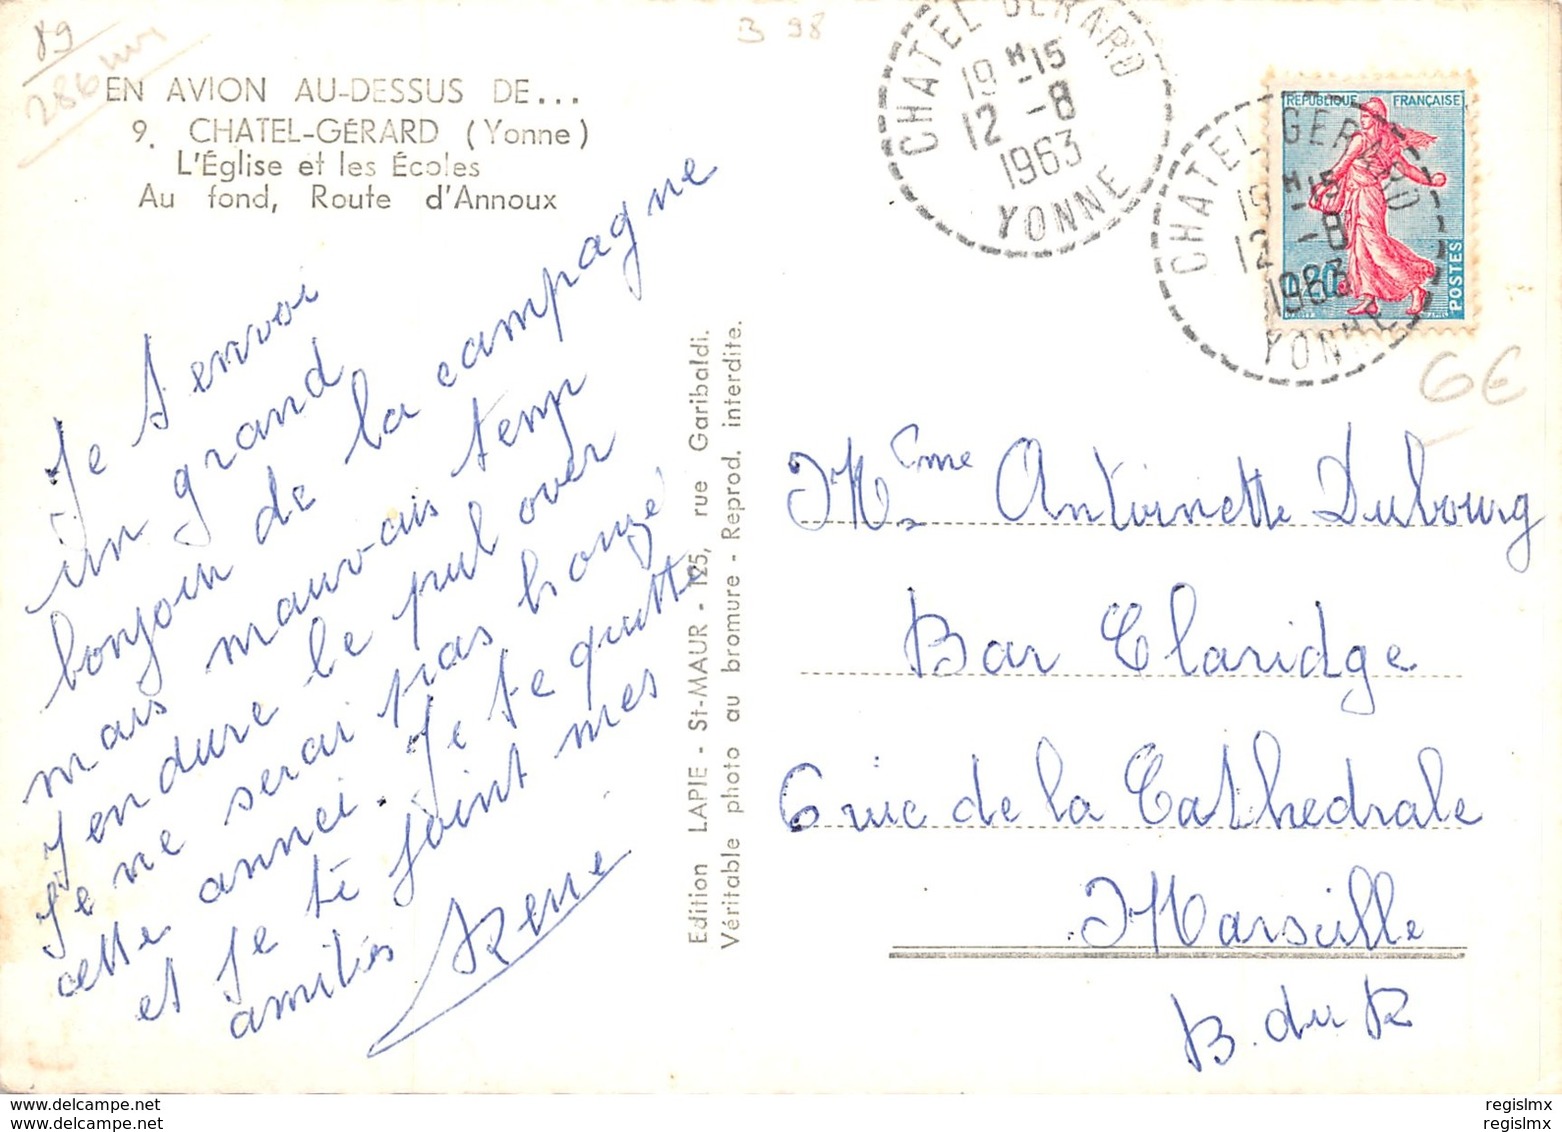 89
286 hab
B 98
EN AVION AU-DESSUS DE...
9. CHATEL-GÉRARD (Yonne)
L'Église et les Écoles
Au fond, Route d'Annoux
Je t'envoi
un grand
bonjour de la campagne
mais mauvais temp
J'endure le pul over
Je ne serai pas bronzé
cette annei. Je te quitte
et je te joint mes
amitiés
Edition LAPIE - St-MAUR - 125, rue Garibaldi.
Véritable photo au bromure - Reprod. interdite.
CHATEL GERARD
19 H 15
12 - 8
1963
YONNE
CHATEL GERARD
19 H 15
12 - 8
1963
YONNE
REPUBLIQUE FRANÇAISE
0,20
POSTES
6€
Mme Antoinette Dubourg
Bar Claridge
6 rue de la Cathedrale
Marseille
B. du R
regislmx
regislmx
regislmx
regislmx